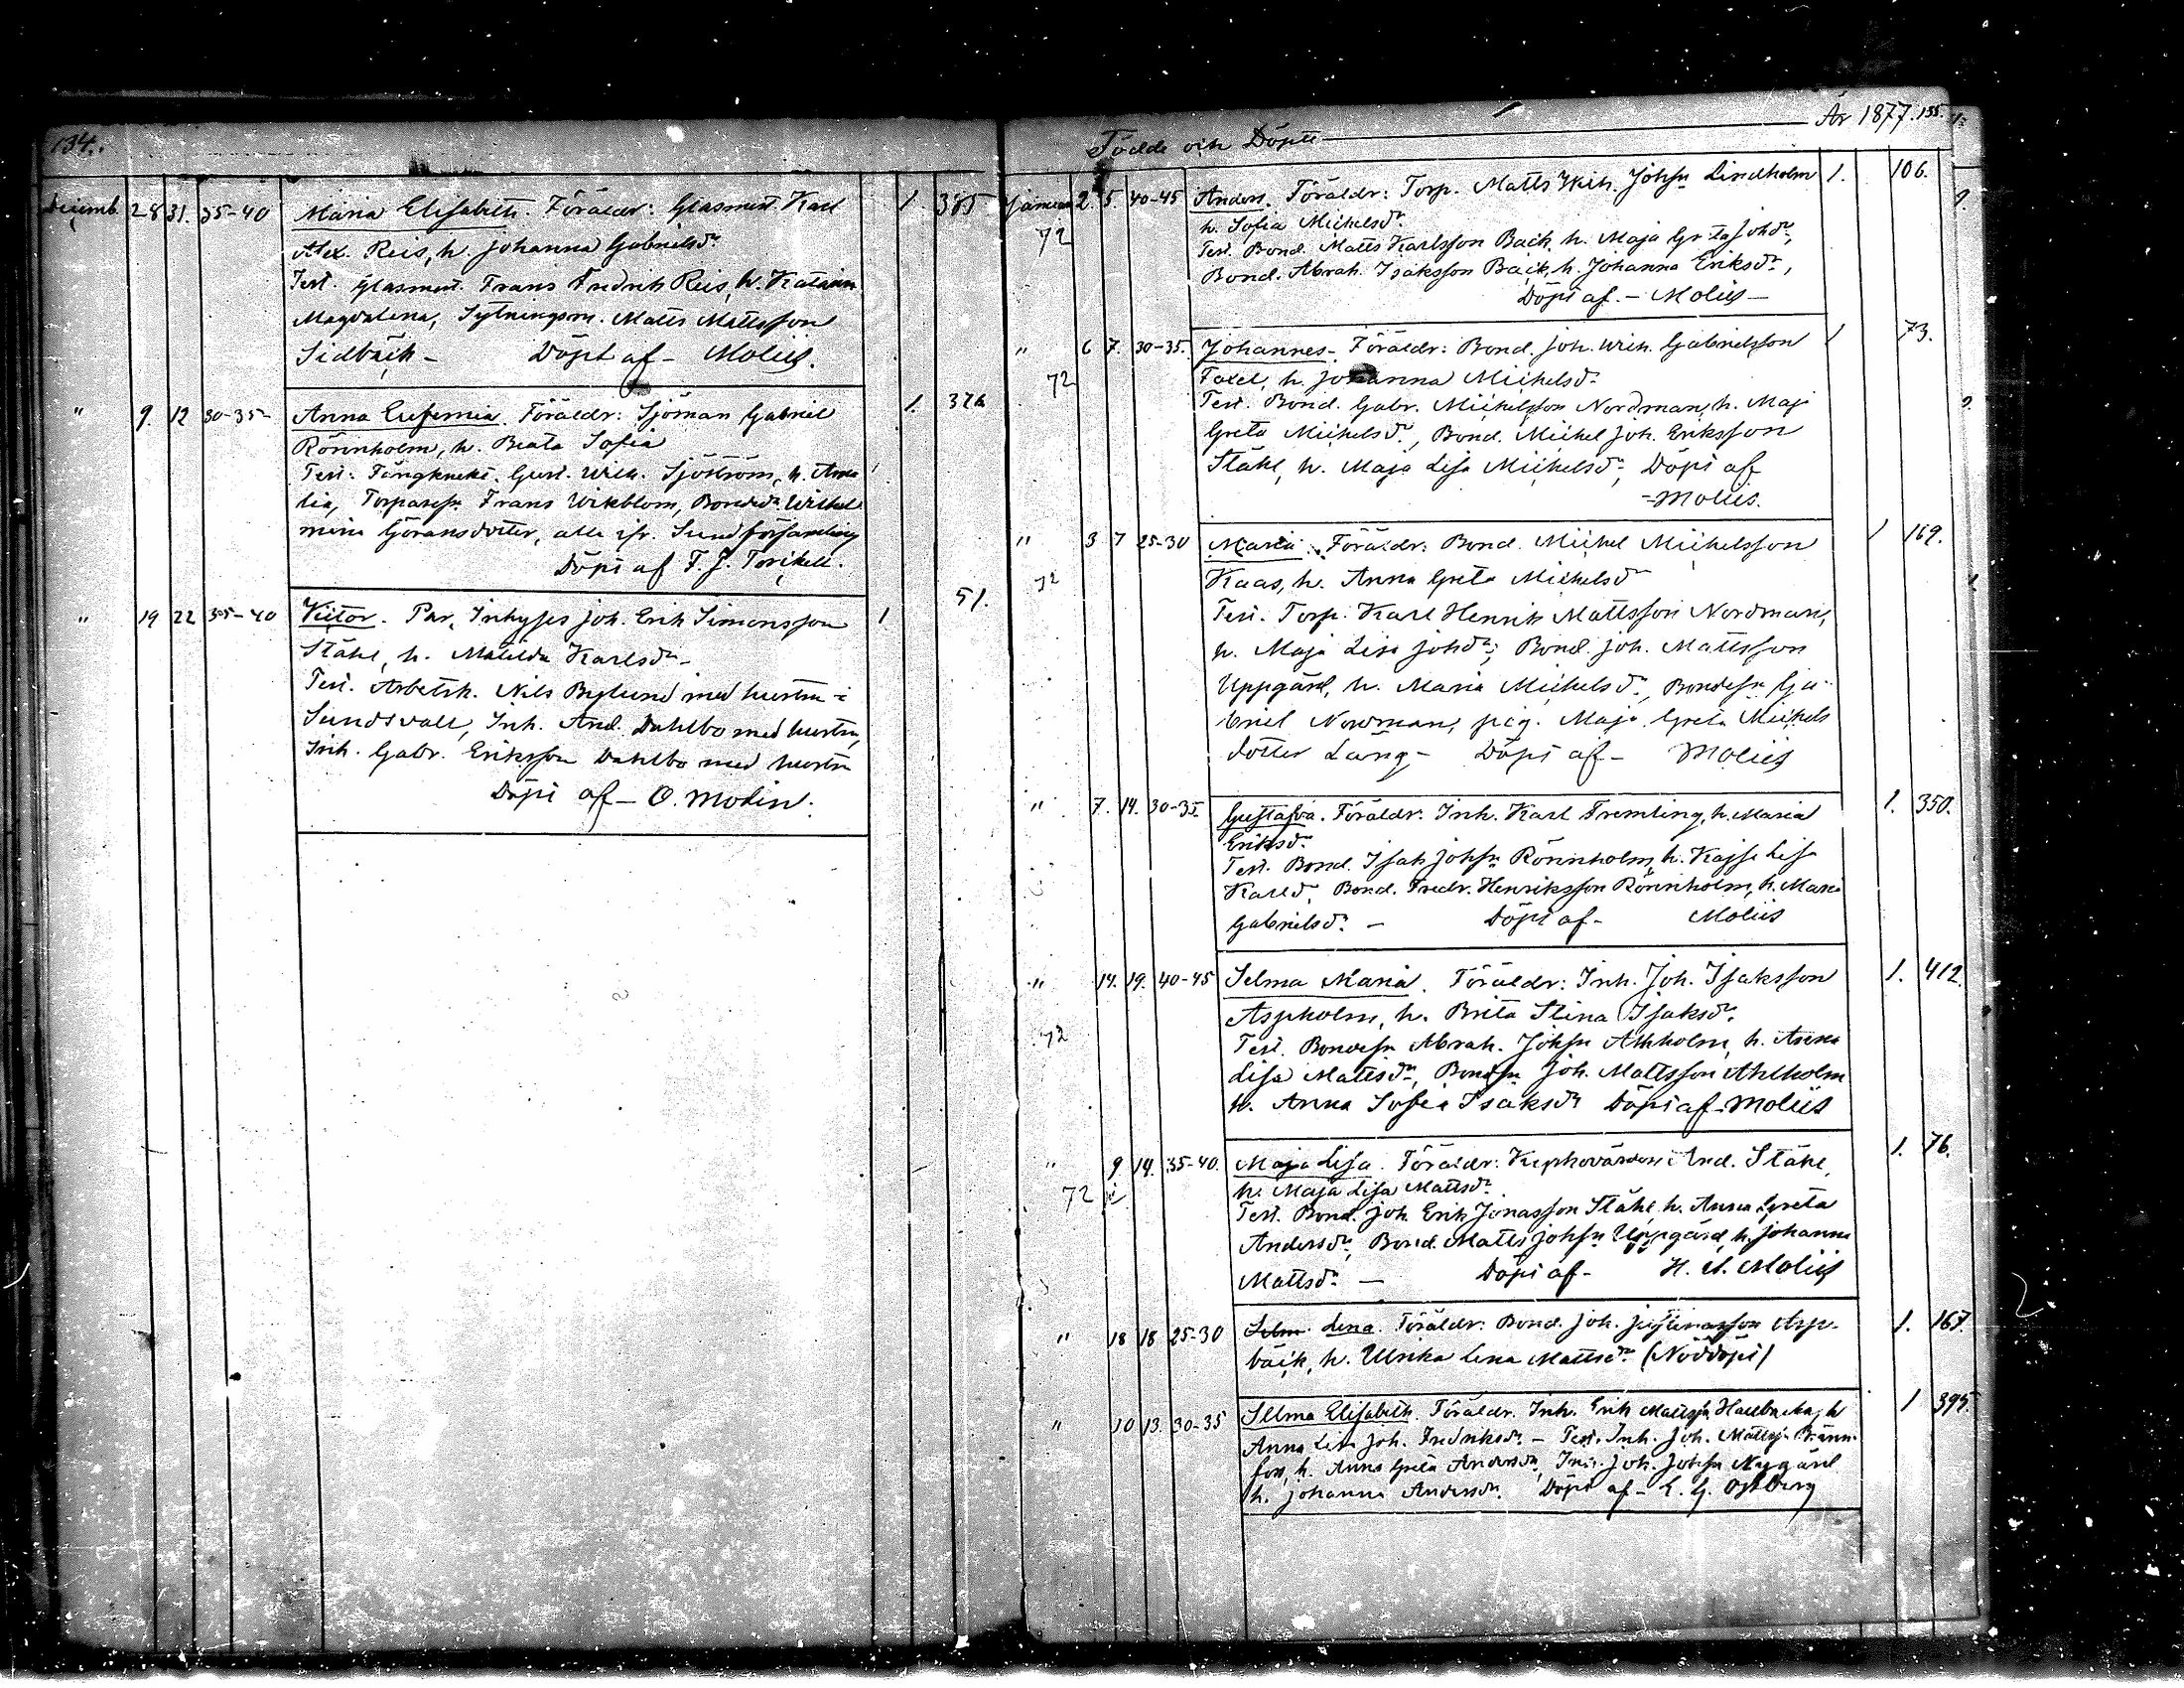 134.
Decemb. 28 31. 35-40 Maria Elisabeth. Föräldr: Glasmest. Karl 1. 385
Alex. Reis, h. Johanna Gabrielsdr
Test. Glasmest. Frans Fredrik Reis, h. Katarin
Magdalena, Sytningsm. Matts Mattsson
Sidbäck - Döpt af - Moliis.
" 9. 12 30-35- Anna Eufemia. Föräldr: Sjöman Gabriel 1. 376
Rönnholm, h. Beata Sofia
Test: Fängknekt. Gust. Wilh. Sjöström, h. Ama
lia, Torparesn Frans Wikblom, Bondedr Wilhel
mina Göransdotter, alla ifr. Sund församling
Döpt af F. J. Torckell.
" 19 22 35-40 Victor. Par, Inhyses Joh. Erik Simonsson 1 51.
Ståhl, h. Matilda Karlsdr -
Test. Arbetsk. Nils Bylund med hustru i
Sundsvall, Inh. And. Dahlbo med hustru,
Inh. Gabr. Eriksson Dahlbo med hustru
Döpt af - O. Molin.
Födde och Döpte År 1877. 135.
Januari 2. 5. 40-45 Anders. Föräldr: Torp. Matts Wilh. Johsn Lindholm 1. 106.
72 h. Sofia Michelsdr
Test. Bond. Matts Karlsson Back, h. Maja Greta Johdr,
Bond. Abrah. Isaksson Back, h. Johanna Eriksdr,
Döpt af. - Moliis -
" 6 7. 30-35. Johannes - Föräldr: Bond. Joh. Wilh. Gabrielsson 1 73.
72 Foxel, h. Johanna Michelsdr
Test. Bond. Gabr. Michelsson Nordman, h. Maj
Greta Michelsdr, Bond. Michel Joh. Eriksson
Ståhl, h. Maja Lisa Michelsdr, Döpt af
- Moliis.
" 3 7 25-30 Maria. Föräldr: Bond. Michel Michelsson 1 169.
72 Kaas, h. Anna Greta Michelsdr
Test. Torp. Karl Henrik Mattsson Nordman,
h. Maja Lisa Johdr; Bond. Joh. Mattsson
Uppgård, h. Maria Michelsdr, Bondesn Ga-
briel Nordman, pig. Maja Greta Michels
dotter Lång - Döpt af - Moliis
" 7. 14. 30-35. Gustafva. Föräldr: Inh. Karl Fremling, h. Maria 1. 350.
Eriksdr
Test. Bond. Isak Johsn Rönnholm, h. Kajsa Lisa
Karlsd, Bond. Fredr. Henriksson Rönnholm, h. Maria
Gabrielsdr. - Döpt af - Moliis
" 14. 19. 40-45 Selma Maria. Föräldr: Inh. Joh. Isaksson 1. 412.
Aspholm, h. Brita Stina Isaksdr.
72 Test. Bondesn Abrah. Johsn Ahlholm, h. Anna
Lisa Mattsdr, Bondsn Joh. Mattsson Ahlholm
h. Anna Sofia Isaksdr Döpt af - Moliis
" 9 14. 35-40. Maja Lisa. Föräldr: Kyrkovärden And. Ståhl, 1. 76.
72 h. Maja Lisa Mattsdr.
Test. Bond. Joh. Erik Jonasson Ståhl, h. Anna Greta
Andersdr, Bond. Matts Johsn Uppgård, h. Johanna
Mattsdr. - Döpt af - H. A. Moliis
" 18 18 25-30 Selm Lena. Föräldr: Bond. Joh. Asp- 1. 167.
bäck, h. Ulrika Lena Mattsdr. (Nöddöpt)
" 10 13. 30-35 Selma Elisabeth. Föräldr. Inh. Erik Mattssn h 1 395.
Anna Lisa Joh. Fredriksdr. - Test. Inh. Joh. Mattssn Bränn-
fors, h. Anna Greta Andersdr, Inh. Joh. Johsn Nygård
h. Johanna Andersdr. Döpt af - E. G. Östberg